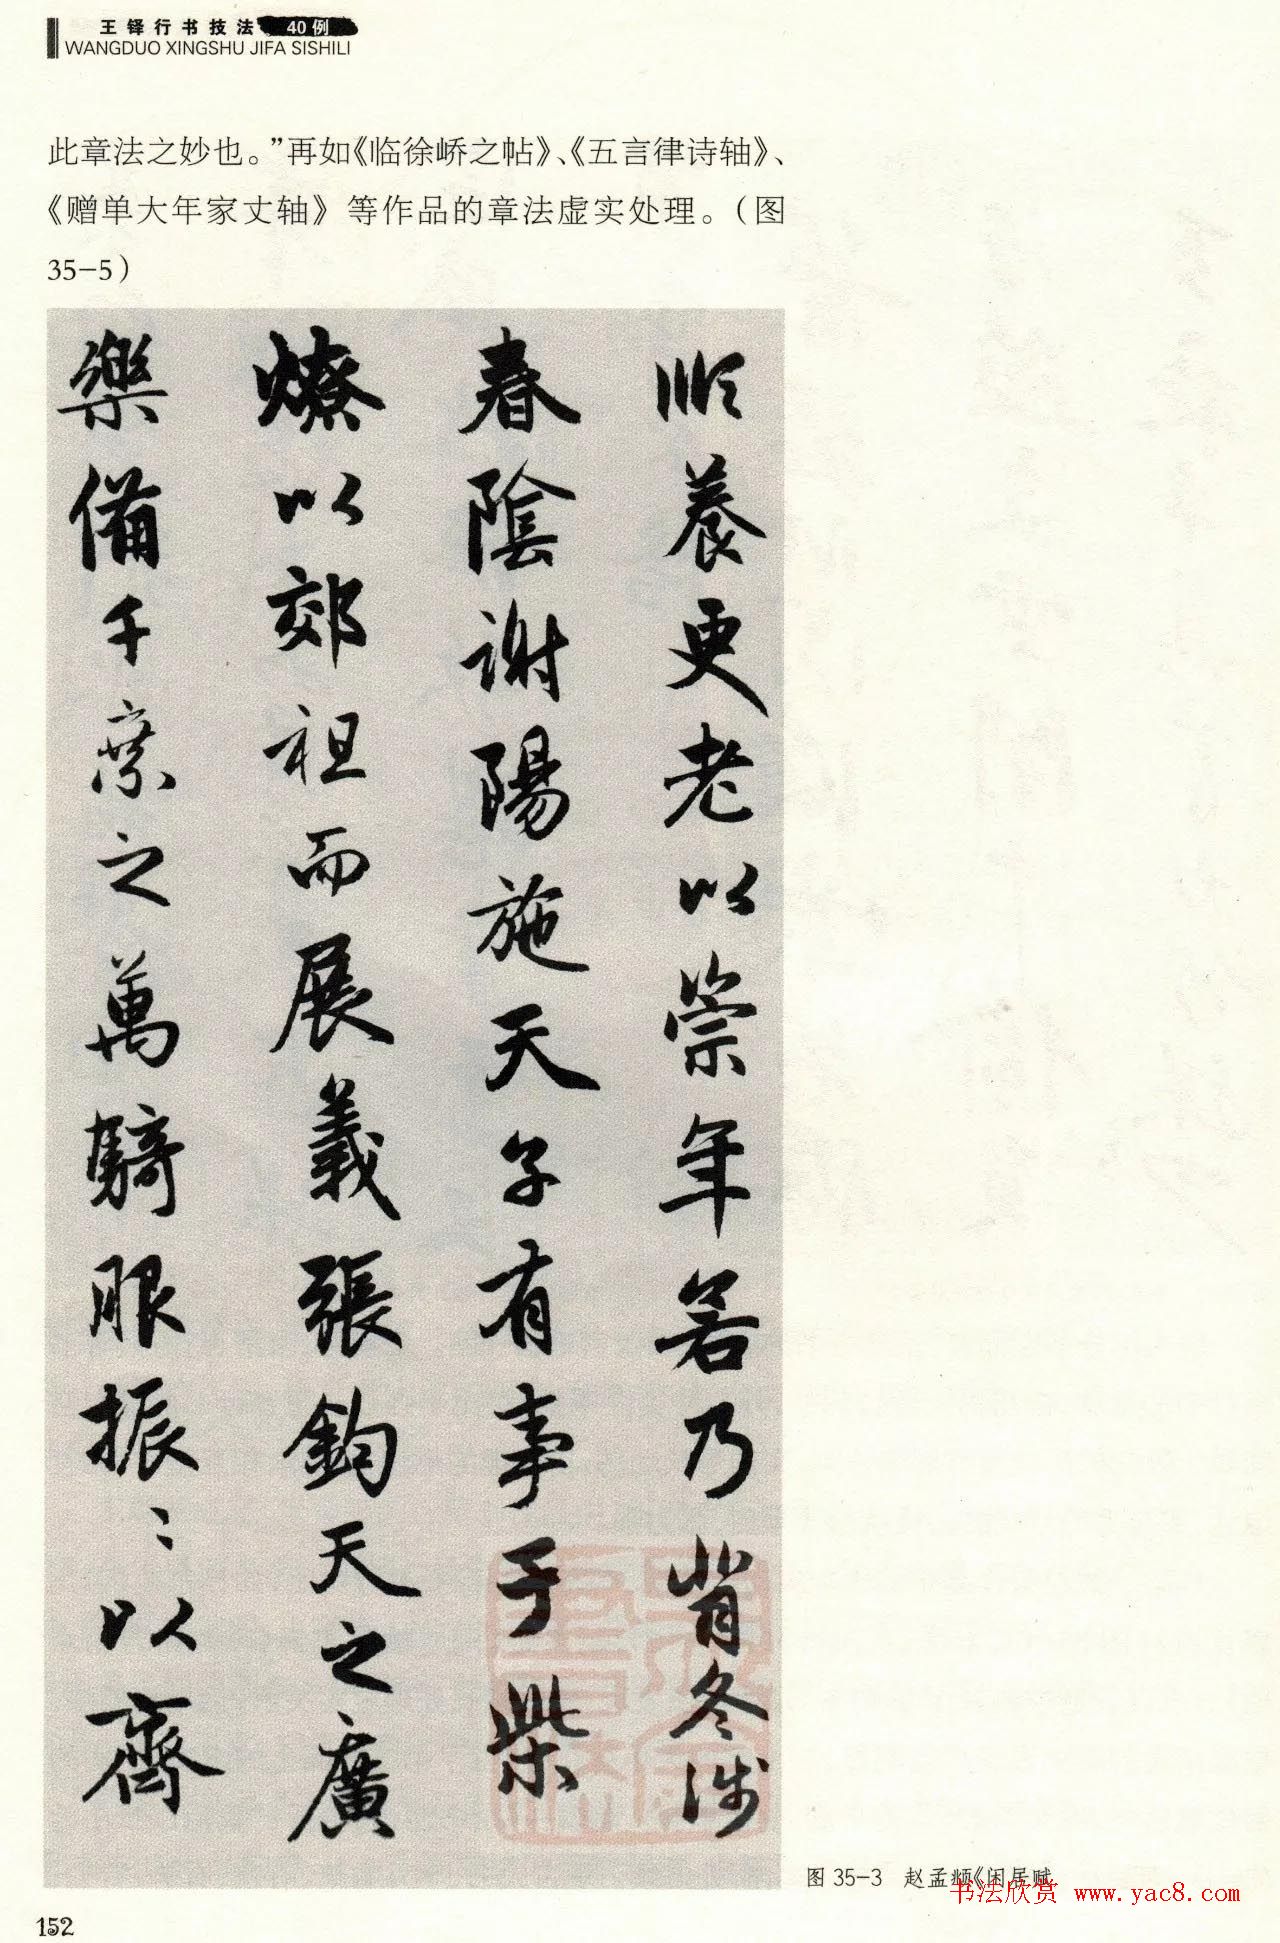 王铎行书技法 40例
WANGDUO XINGSHU JIFA SISHILI
此章法之妙也。”再如《临徐峤之帖》、《五言律诗轴》、
《赠单大年家丈轴》等作品的章法虚实处理。（图
35-5）
順養更老以崇年若乃背冬涉
春陰謝陽施天子有事于柴
燎以郊祖而展義張鈞天之廣
樂備千乘之萬騎服振〻以齊
图 35-3 赵孟頫《闲居赋
书法欣赏 www.yac8.com
152